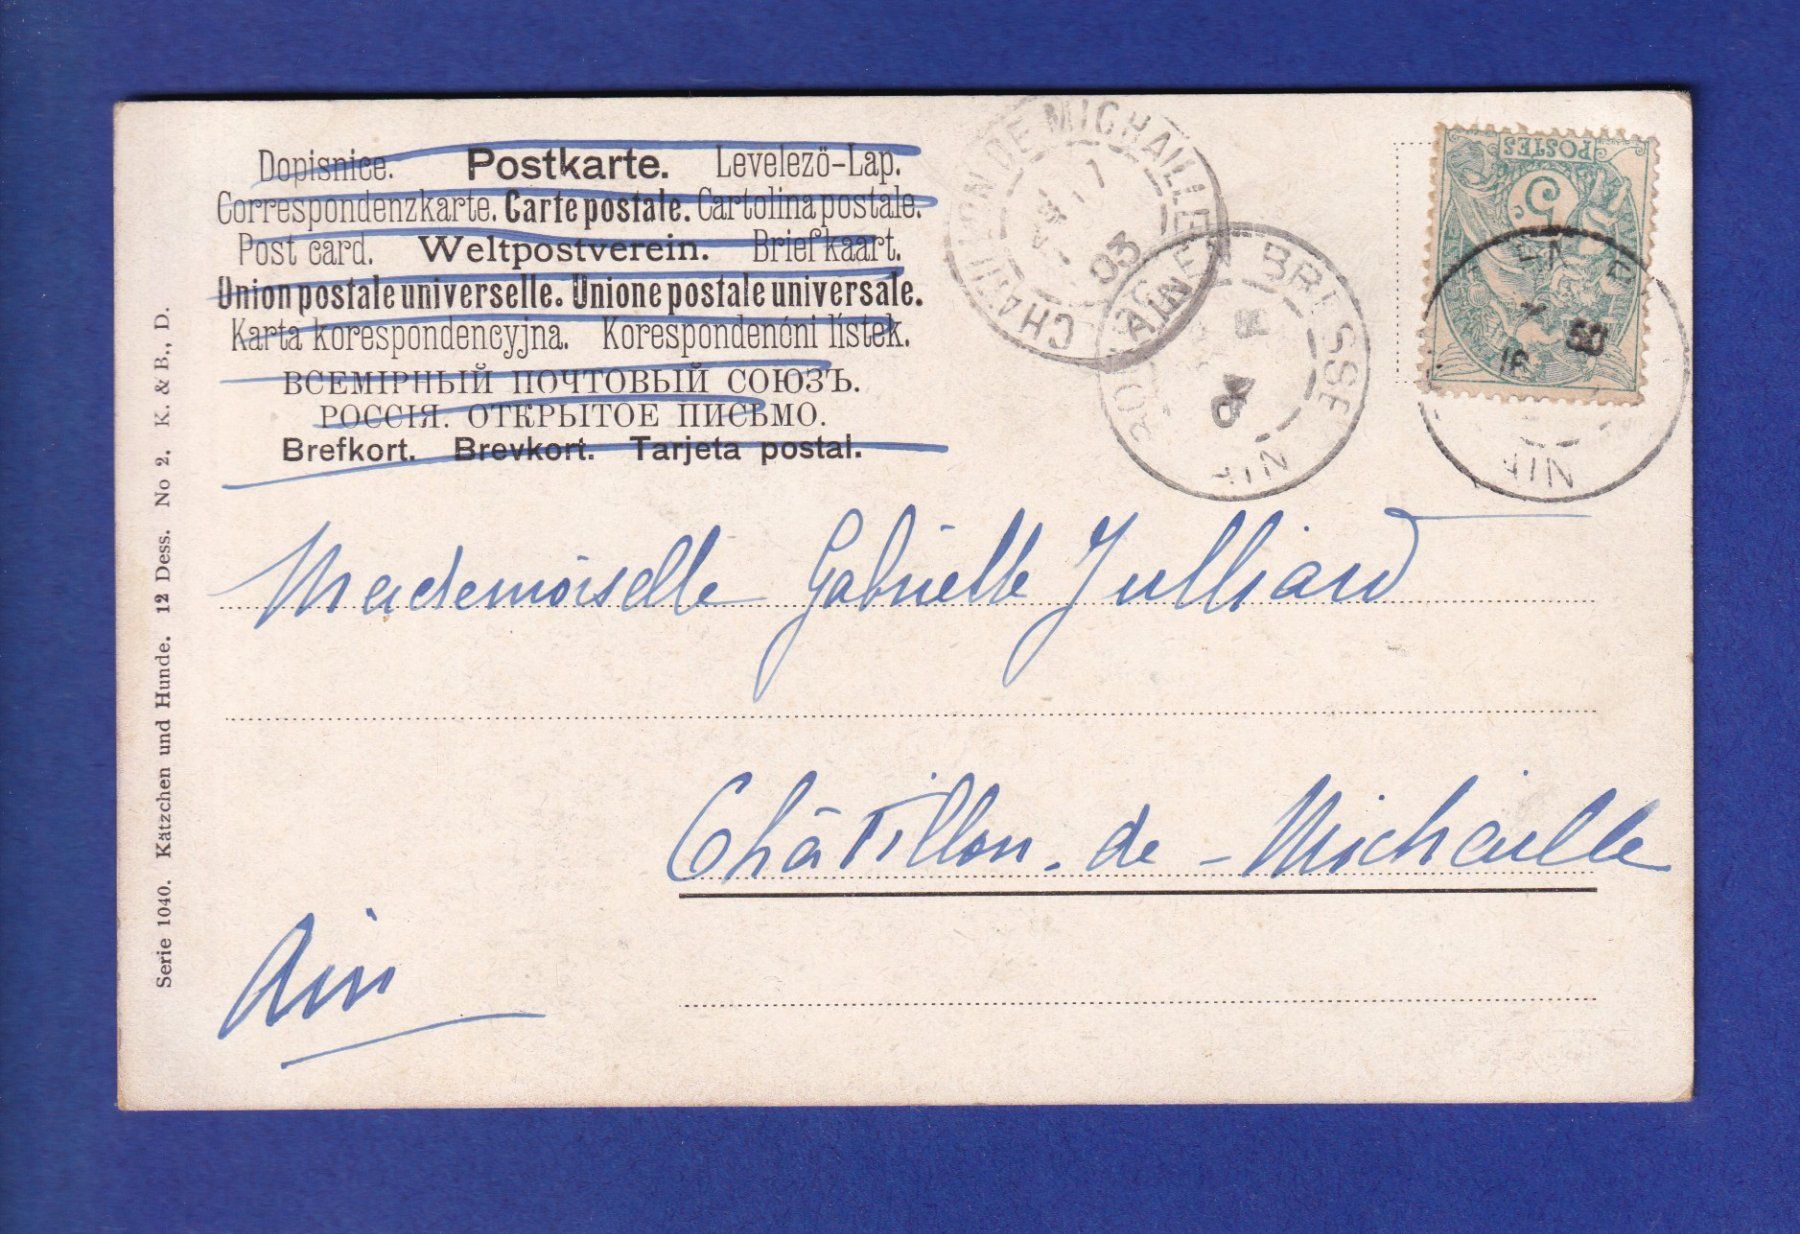 Dopisnice. Postkarte. Levelező-Lap.
Correspondenzkarte. Carte postale. Cartolina postale.
Post card. Weltpostverein. Briefkaart.
Union postale universelle. Unione postale universale.
Karta korespondencyjna. Korespondenčni lístek.
ВСЕМІРНЫЙ ПОЧТОВЫЙ СОЮЗЪ.
РОССІЯ. ОТКРЫТОЕ ПИСЬМО.
Brefkort. Brevkort. Tarjeta postal.
CHATILLON DE MICHAILLE
03
BRESSE
AIN
POSTES
5
AIN
Mademoiselle Gabrielle Julliard
Châtillon-de-Michaille
Ain
Serie 1040. Kätzchen und Hunde. 12 Dess. No 2. K. & B., D.